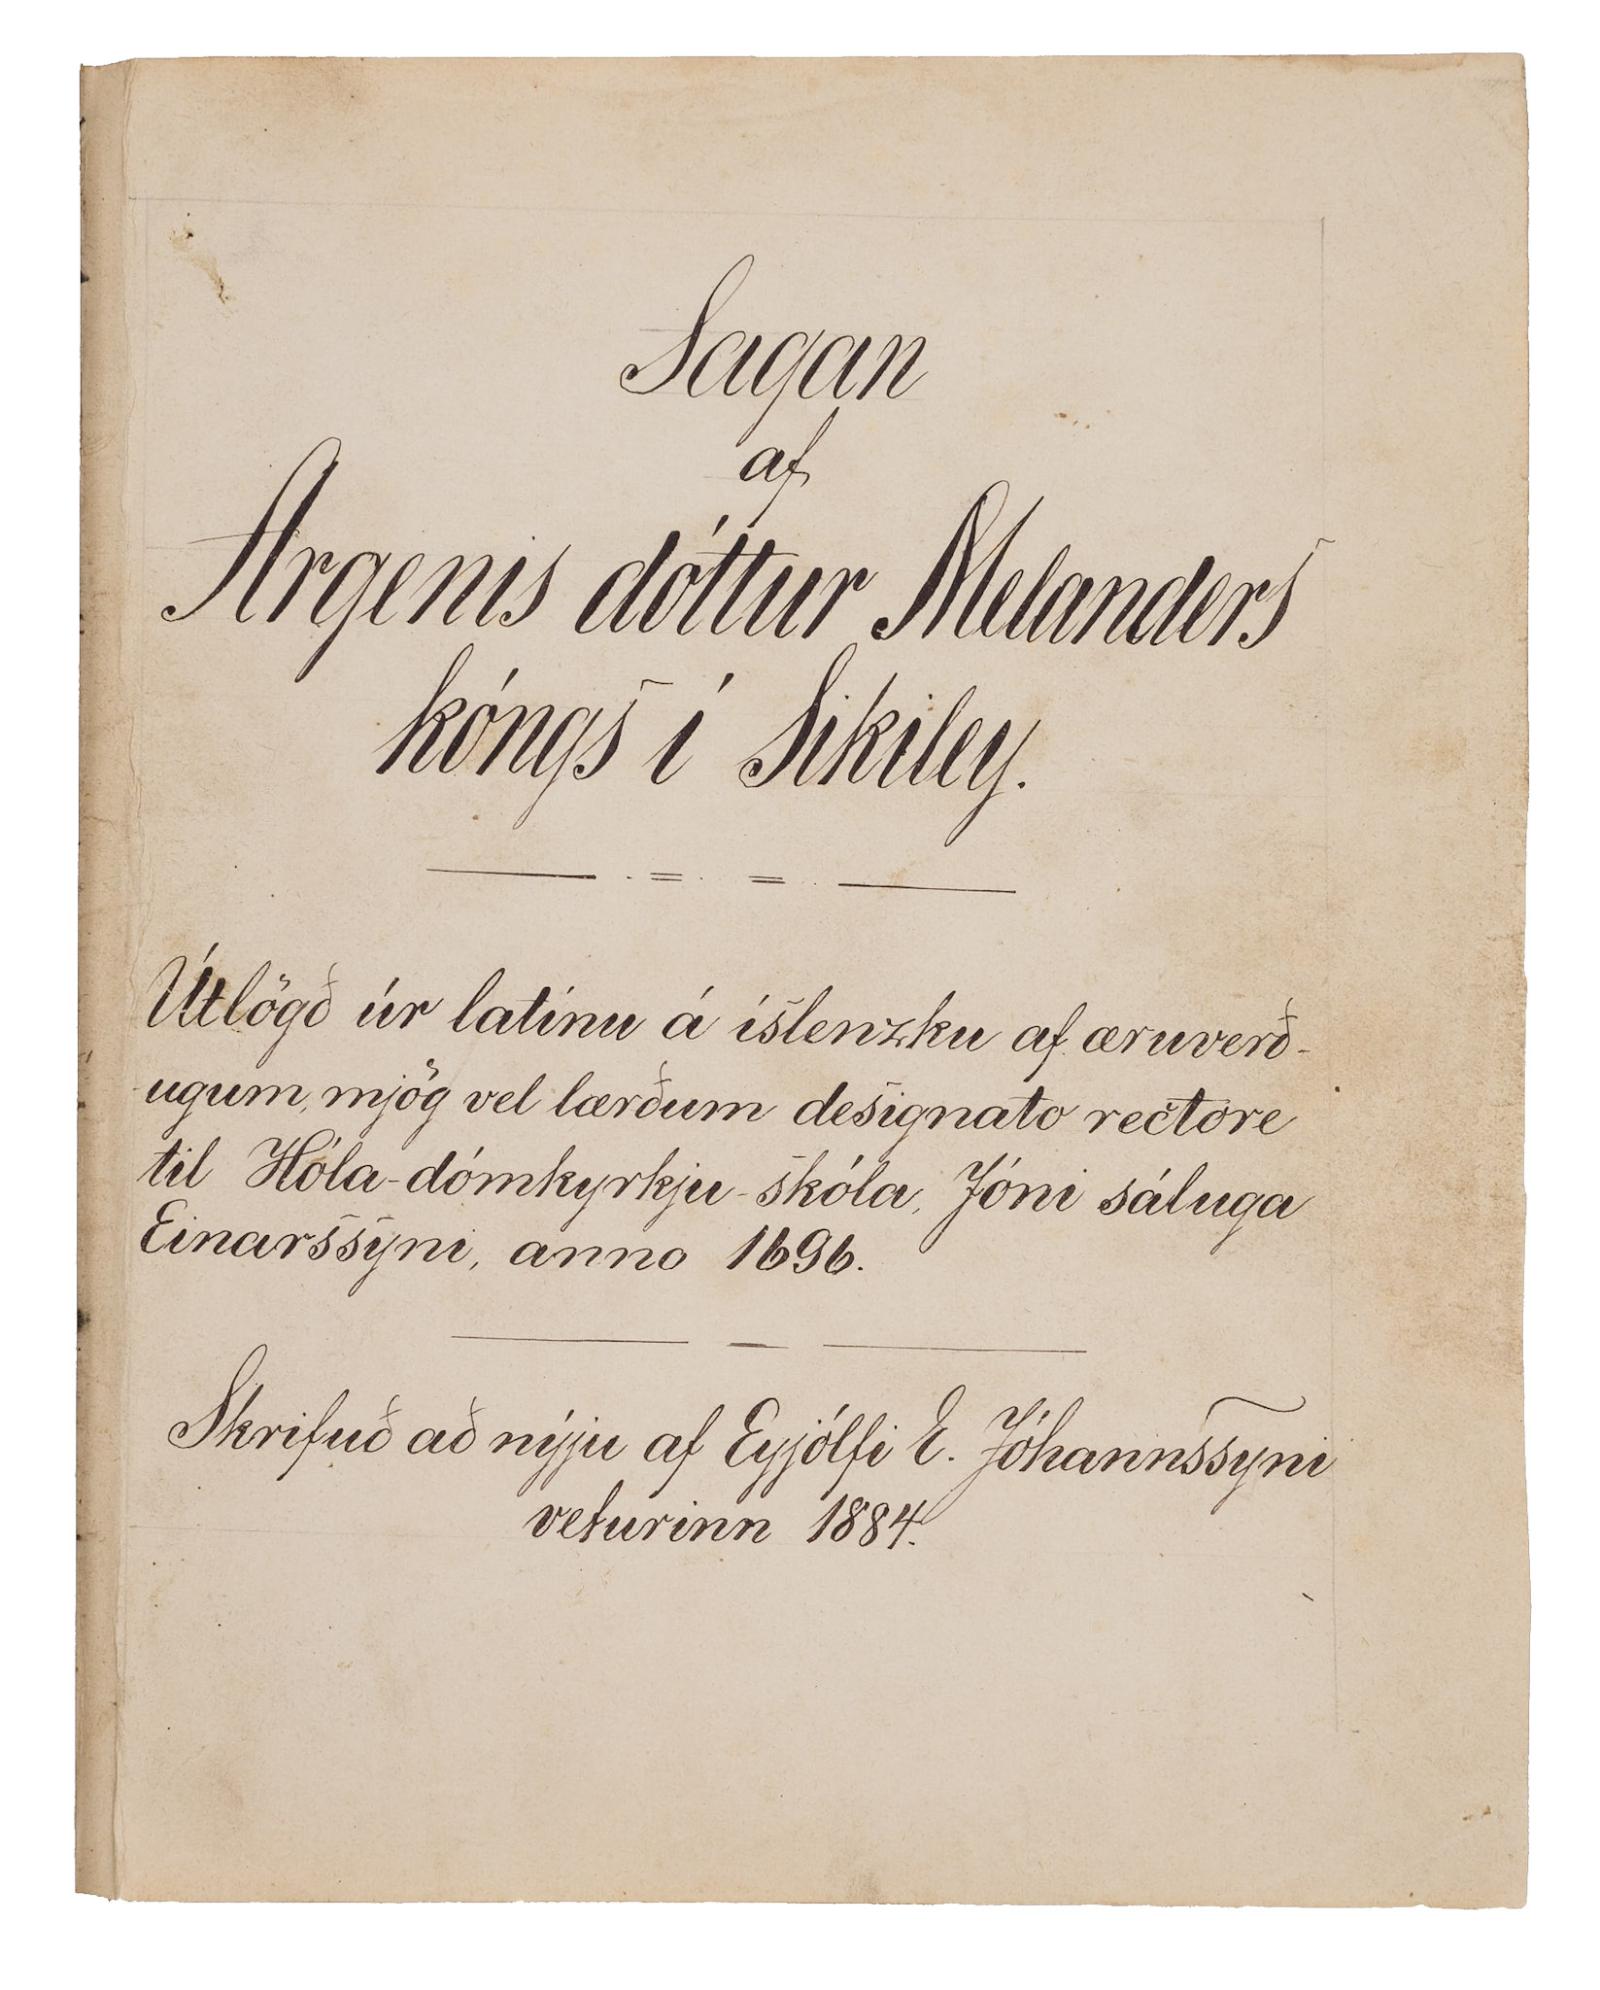 Sagan
af
Argenis dóttur Melanders
kóngs í Sikiley.
Útlögð úr latínu á íslenzku af æruverð-
ugum, mjög vel lærðum designato rectore
til Hóla-dómkyrkju-skóla, Jóni sáluga
Einarssyni, anno 1696.
Skrifuð að nýju af Eyjólfi E. Jóhannssyni
veturinn 1884.